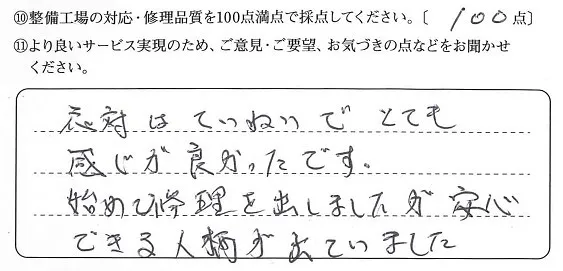 ⑩整備工場の対応・修理品質を100点満点で採点してください。〔 100点〕
⑪より良いサービス実現のため、ご意見・ご要望、お気づきの点などをお聞かせ
ください。
応対はていねいでとても
感じが良かったです。
始めて修理を出しましたが安心
できる人柄が出ていました